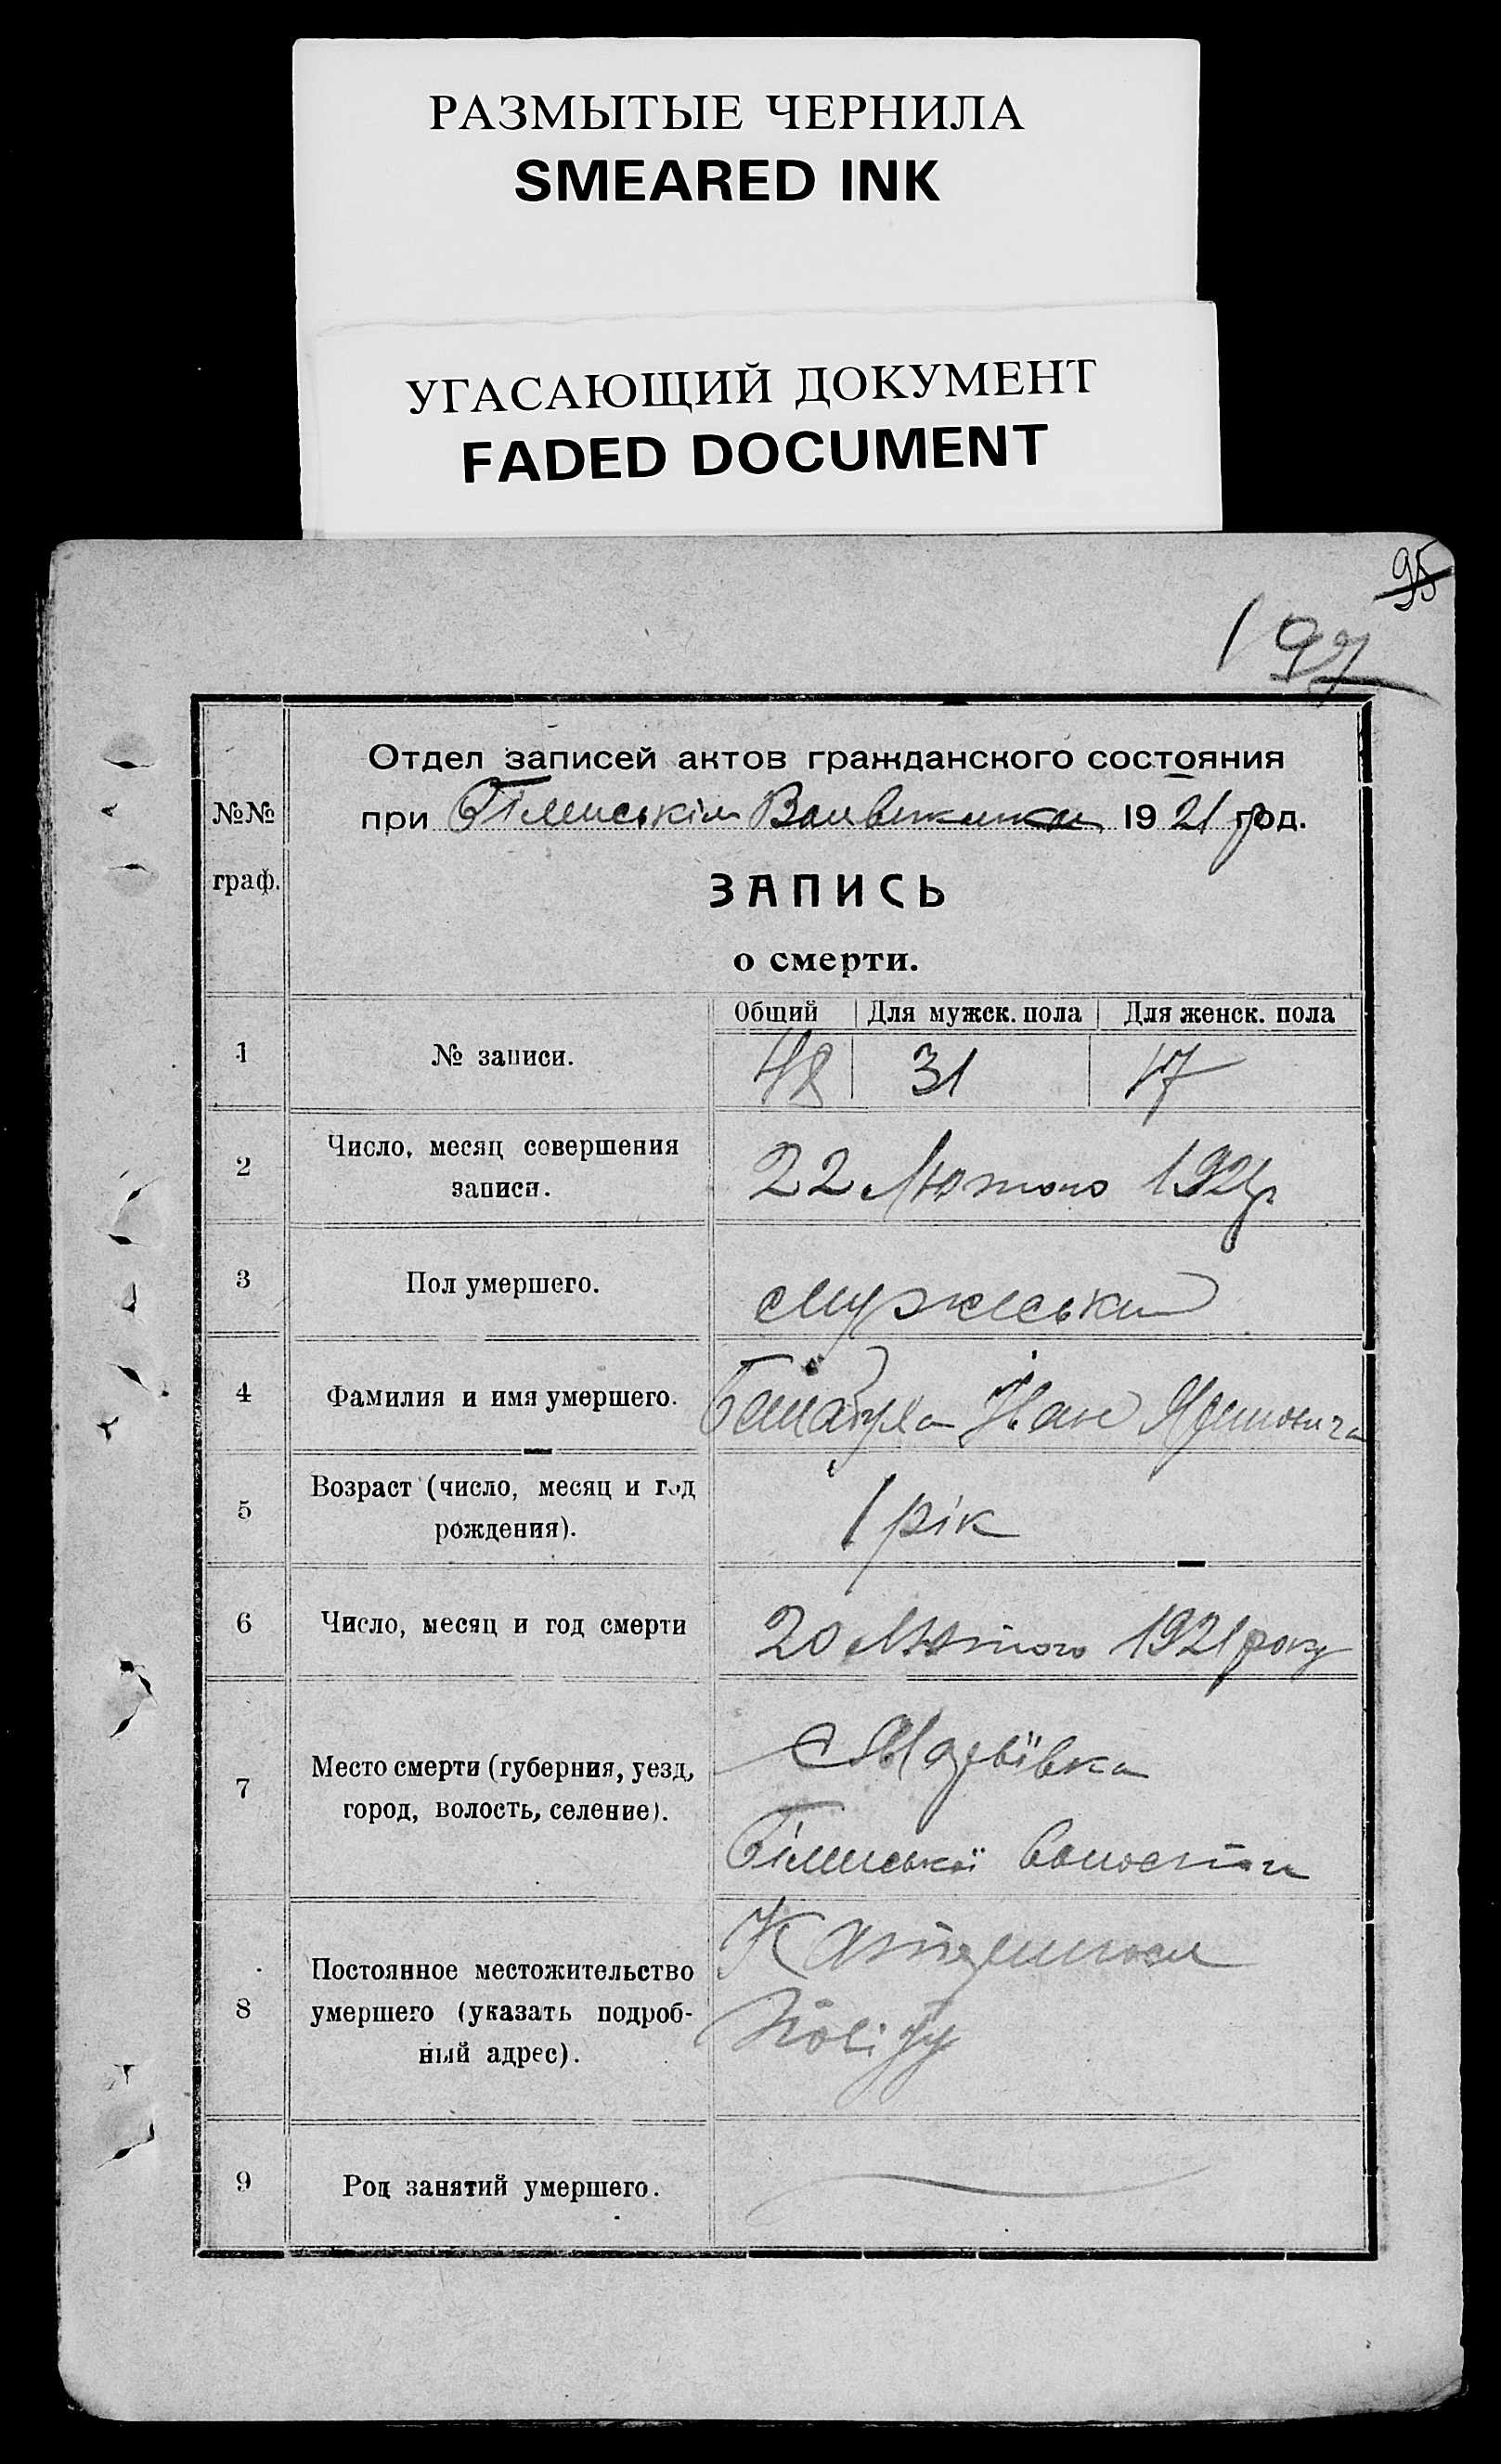 РАЗМЫТЫЕ ЧЕРНИЛА
SMEARED INK
УГАСАЮЩИЙ ДОКУМЕНТ
FADED DOCUMENT
95
197
№№ граф.
Отдел записей актов гражданского состояния
при 1921 год.
ЗАПИСЬ
о смерти.
Общий Для мужск. пола Для женск. пола
1 № записи. 48 31 17
2 Число, месяц совершения
записи. 22 Лютого 1921р
3 Пол умершего. мужеський
4 Фамилия и имя умершего. Іван
5 Возраст (число, месяц и год
рождения). 1 рік
6 Число, месяц и год смерти 20 Лютого 1921 року
7 Место смерти (губерния, уезд,
город, волость, селение).
с
волости
8 Постоянное местожительство
умершего (указать подроб-
ный адрес).
9 Род занятий умершего.